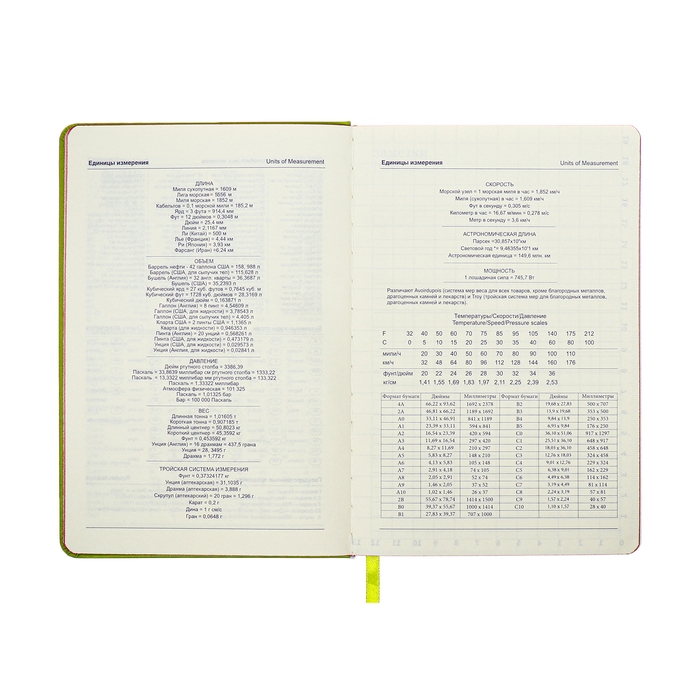 Единицы измерения
Units of Measurement
ДЛИНА
Миля сухопутная = 1609 м
Лига морская = 5556 м
Миля морская = 1852 м
Кабельтов = 0,1 морской мили = 185,2 м
Ярд = 3 фута = 914,4 мм
Фут = 12 дюймов = 0,3048 м
Дюйм = 25,4 мм
Линия = 2,1167 мм
Ли (Китай) = 500 м
Лье (Франция) = 4,44 км
Ри (Япония) = 3,93 км
Фарсанг (Иран) =6,24 км
ОБЪЕМ
Баррель нефти - 42 галлона США = 158, 988 л
Баррель (США, для сыпучих тел) = 115,628 л
Бушель (Англия) = 32 англ. кварты = 36,3687 л
Бушель (США) = 35,2393 л
Кубический ярд = 27 куб. футов = 0,7645 куб. м
Кубический фут = 1728 куб. дюймов = 28,3169 л
Кубический дюйм = 0,163871 л
Галлон (Англия) = 8 пинт = 4,54609 л
Галлон (США, для жидкости) = 3,78543 л
Галлон (США, для сыпучих тел) = 4,405 л
Кларта США = 2 пинты США = 1,1365 л
Кварта (для жидкости) = 0,946353 л
Пинта (Англия) = 20 унций = 0,568261 л
Пинта (США, для жидкости) = 0,473179 л
Унция (США, для жидкости) = 0,029573 л
Унция (Англия, для жидкости) = 0,02841 л
ДАВЛЕНИЕ
Дюйм ртутного столба = 3386,39
Паскаль = 33,8639 миллибар см ртутного столба = 1333,22
Паскаль = 13,3322 миллибар мм ртутного столба = 133,322
Паскаль = 1,33322 миллибар
Атмосфера физическая = 101 325
Паскаль = 1,01325 бар
Бар = 100 000 Паскаль
ВЕС
Длинная тонна = 1,01605 т
Короткая тонна = 0,907185 т
Длинный центнер = 50,8023 кг
Короткий центнер = 45,3592 кг
Фунт = 0,453592 кг
Унция (Англия) = 16 драхмам = 437,5 грана
Унция = 28, 3495 г
Драхма = 1,772 г
ТРОЙСКАЯ СИСТЕМА ИЗМЕРЕНИЯ
Фунт = 0,37324177 кг
Унция (аптекарская) = 31,1035 г
Драхма (аптекарская) = 3,888 г
Скрупул (аптекарский) = 20 гран = 1,296 г
Карат = 0,2 г
Дина = 1 г см/с
Гран = 0,0648 г
Единицы измерения
Units of Measurement
СКОРОСТЬ
Морской узел = 1 морская миля в час = 1,852 км/ч
Миля (сухопутная) в час = 1,609 км/ч
Фут в секунду = 0,305 м/с
Километр в час = 16,67 м/мин = 0,278 м/с
Метр в секунду = 3,6 км/ч
АСТРОНОМИЧЕСКАЯ ДЛИНА
Парсек =30,857x10¹²км
Световой год *= 9,46355x10¹²км
Астрономическая единица = 149,6 млн. км
МОЩНОСТЬ
1 лошадиная сила = 745,7 Вт
Различают Avoirdupois (система мер веса для всех товаров, кроме благородных металлов,
драгоценных камней и лекарств) и Troy (тройская система мер для благородных металлов,
драгоценных камней и лекарств).
Температуры/Скорости/Давление
Temperature/Speed/Pressure scales
F 32 40 50 60 70 75 85 95 105 140 175 212
C 0 5 10 15 20 25 30 35 40 60 80 100
мили/ч 20 30 40 50 60 70 80 90 100 110
км/ч 32 48 64 80 96 112 128 144 160 176
фунт/дюйм 20 22 24 26 28 30 32 34 36
кг/см 1,41 1,55 1,69 1,83 1,97 2,11 2,25 2,39 2,53
Формат бумаги Дюймы Миллиметры Формат бумаги Дюймы Миллиметры
4A 66,22 x 93,62 1692 x 2378 B2 19,68 x 27,83 500 x 707
2A 46,81 x 66,22 1189 x 1692 B3 13,9 x 19,68 353 x 500
A0 33,11 x 46,81 841 x 1189 B4 9,84 x 13,9 250 x 353
A1 23,39 x 33,11 594 x 841 B5 6,93 x 9,84 176 x 250
A2 16,54 x 23,39 420 x 594 C0 36,10 x 51,06 917 x 1297
A3 11,69 x 16,54 297 x 420 C1 25,51 x 36,10 648 x 917
A4 8,27 x 11,69 210 x 297 C2 18,03 x 36,10 458 x 648
A5 5,83 x 8,27 148 x 210 C3 12,76 x 18,03 324 x 458
A6 4,13 x 5,83 105 x 148 C4 9,01 x 12,76 229 x 324
A7 2,91 x 4,18 74 x 105 C5 6,38 x 9,01 162 x 229
A8 2,05 x 2,91 52 x 74 C6 4,49 x 6,38 114 x 162
A9 1,46 x 2,05 37 x 52 C7 3,19 x 4,49 81 x 114
A10 1,02 x 1,46 26 x 37 C8 2,24 x 3,19 57 x 81
2B 55,67 x 78,74 1414 x 1500 C9 1,57 x 2,24 40 x 57
B0 39,37 x 55,67 1000 x 1414 C10 1,10 x 1,57 28 x 40
B1 27,83 x 39,37 707 x 1000